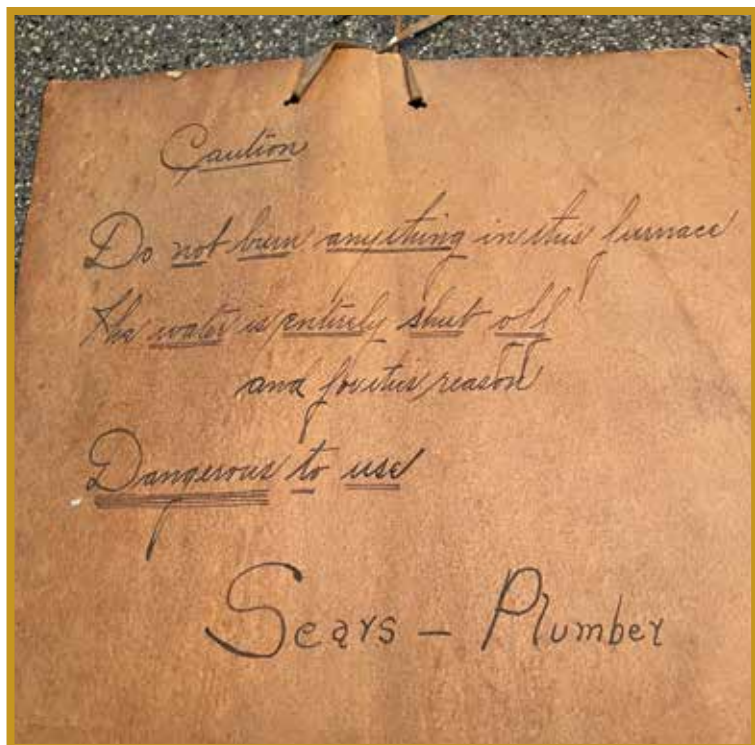 Caution
Do not burn anything in this furnace
The water is entirely shut off
and for this reason
Dangerous to use
Sears – Plumber